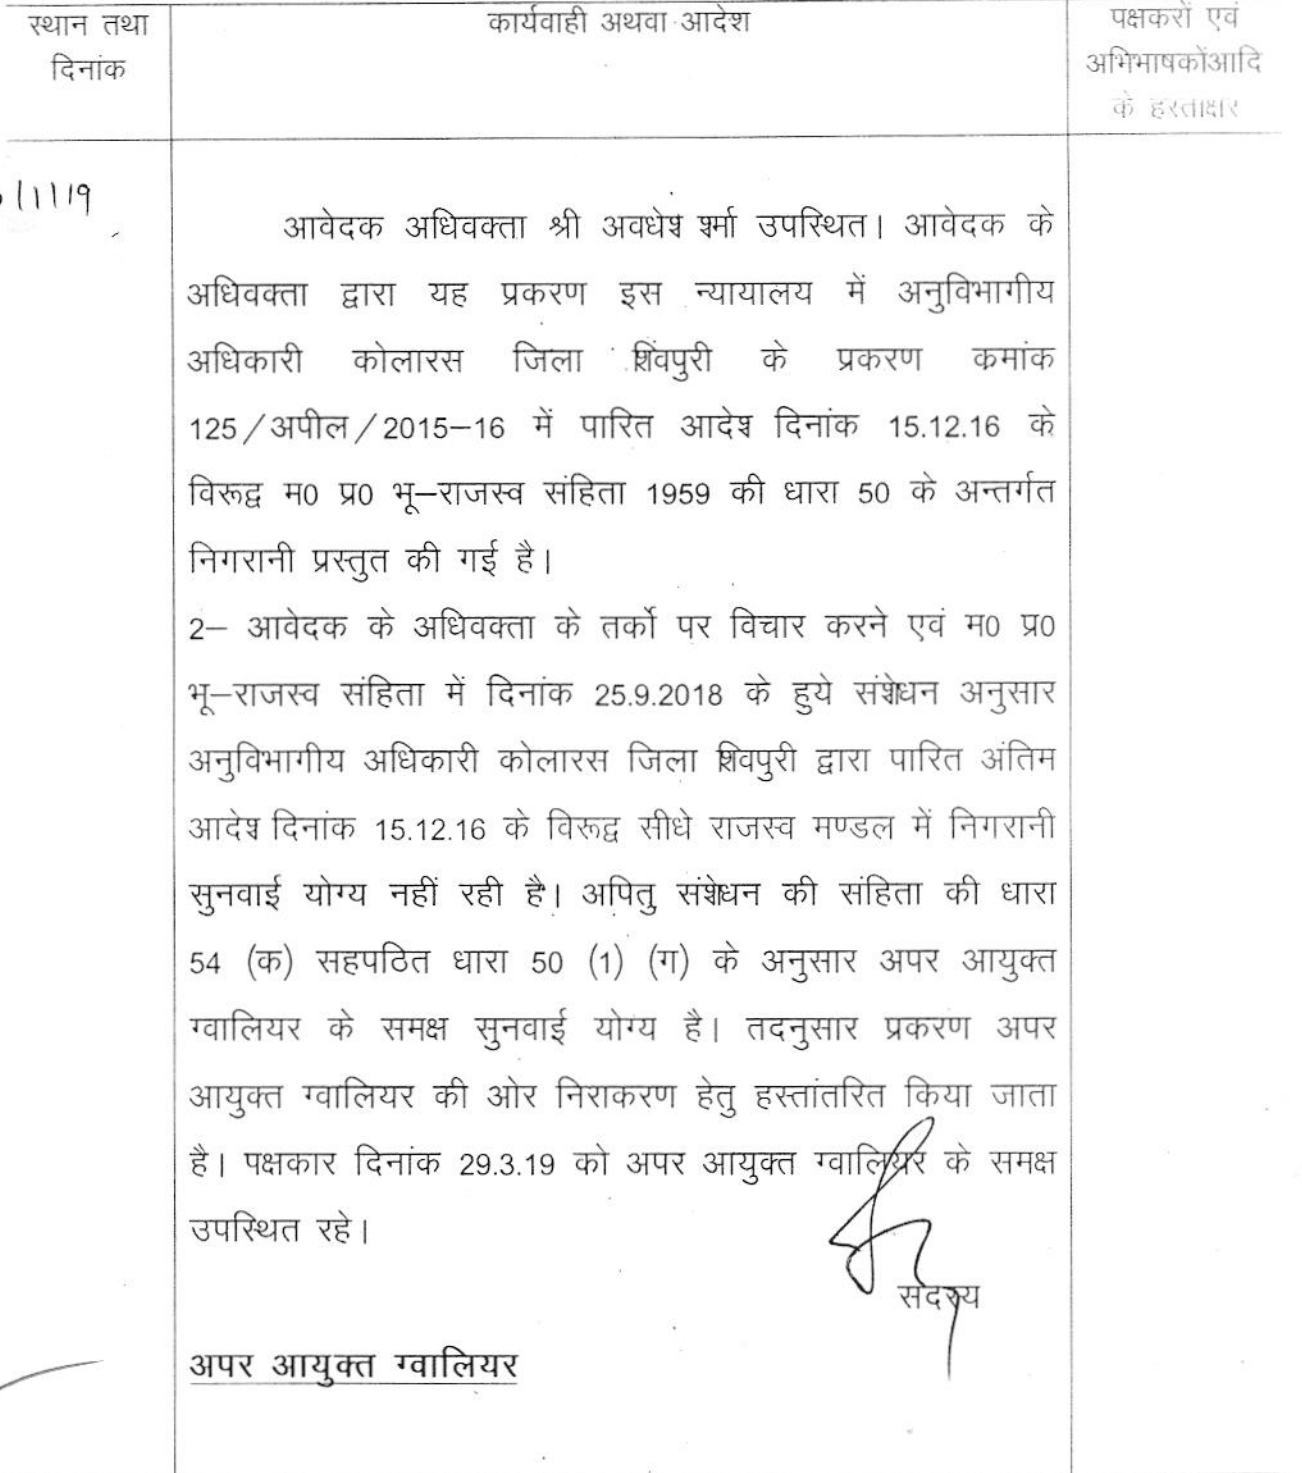 स्थान तथा
दिनांक
कार्यवाही अथवा आदेश
पक्षकरों एवं
अभिभाषकोंआदि
के हस्ताक्षर
/1/19
आवेदक अधिवक्ता श्री अवधेश शर्मा उपस्थित। आवेदक के
अधिवक्ता द्वारा यह प्रकरण इस न्यायालय में अनुविभागीय
अधिकारी कोलारस जिला शिवपुरी के प्रकरण कमांक
125/अपील/2015–16 में पारित आदेश दिनांक 15.12.16 के
विरूद्व म0 प्र0 भू–राजस्व संहिता 1959 की धारा 50 के अन्तर्गत
निगरानी प्रस्तुत की गई है।
2– आवेदक के अधिवक्ता के तर्को पर विचार करने एवं म0 प्र0
भू–राजस्व संहिता में दिनांक 25.9.2018 के हुये संशोधन अनुसार
अनुविभागीय अधिकारी कोलारस जिला शिवपुरी द्वारा पारित अंतिम
आदेश दिनांक 15.12.16 के विरूद्व सीधे राजस्व मण्डल में निगरानी
सुनवाई योग्य नहीं रही है। अपितु संशोधन की संहिता की धारा
54 (क) सहपठित धारा 50 (1) (ग) के अनुसार अपर आयुक्त
ग्वालियर के समक्ष सुनवाई योग्य है। तदनुसार प्रकरण अपर
आयुक्त ग्वालियर की ओर निराकरण हेतु हस्तांतरित किया जाता
है। पक्षकार दिनांक 29.3.19 को अपर आयुक्त ग्वालियर के समक्ष
उपस्थित रहे।
सदस्य
अपर आयुक्त ग्वालियर